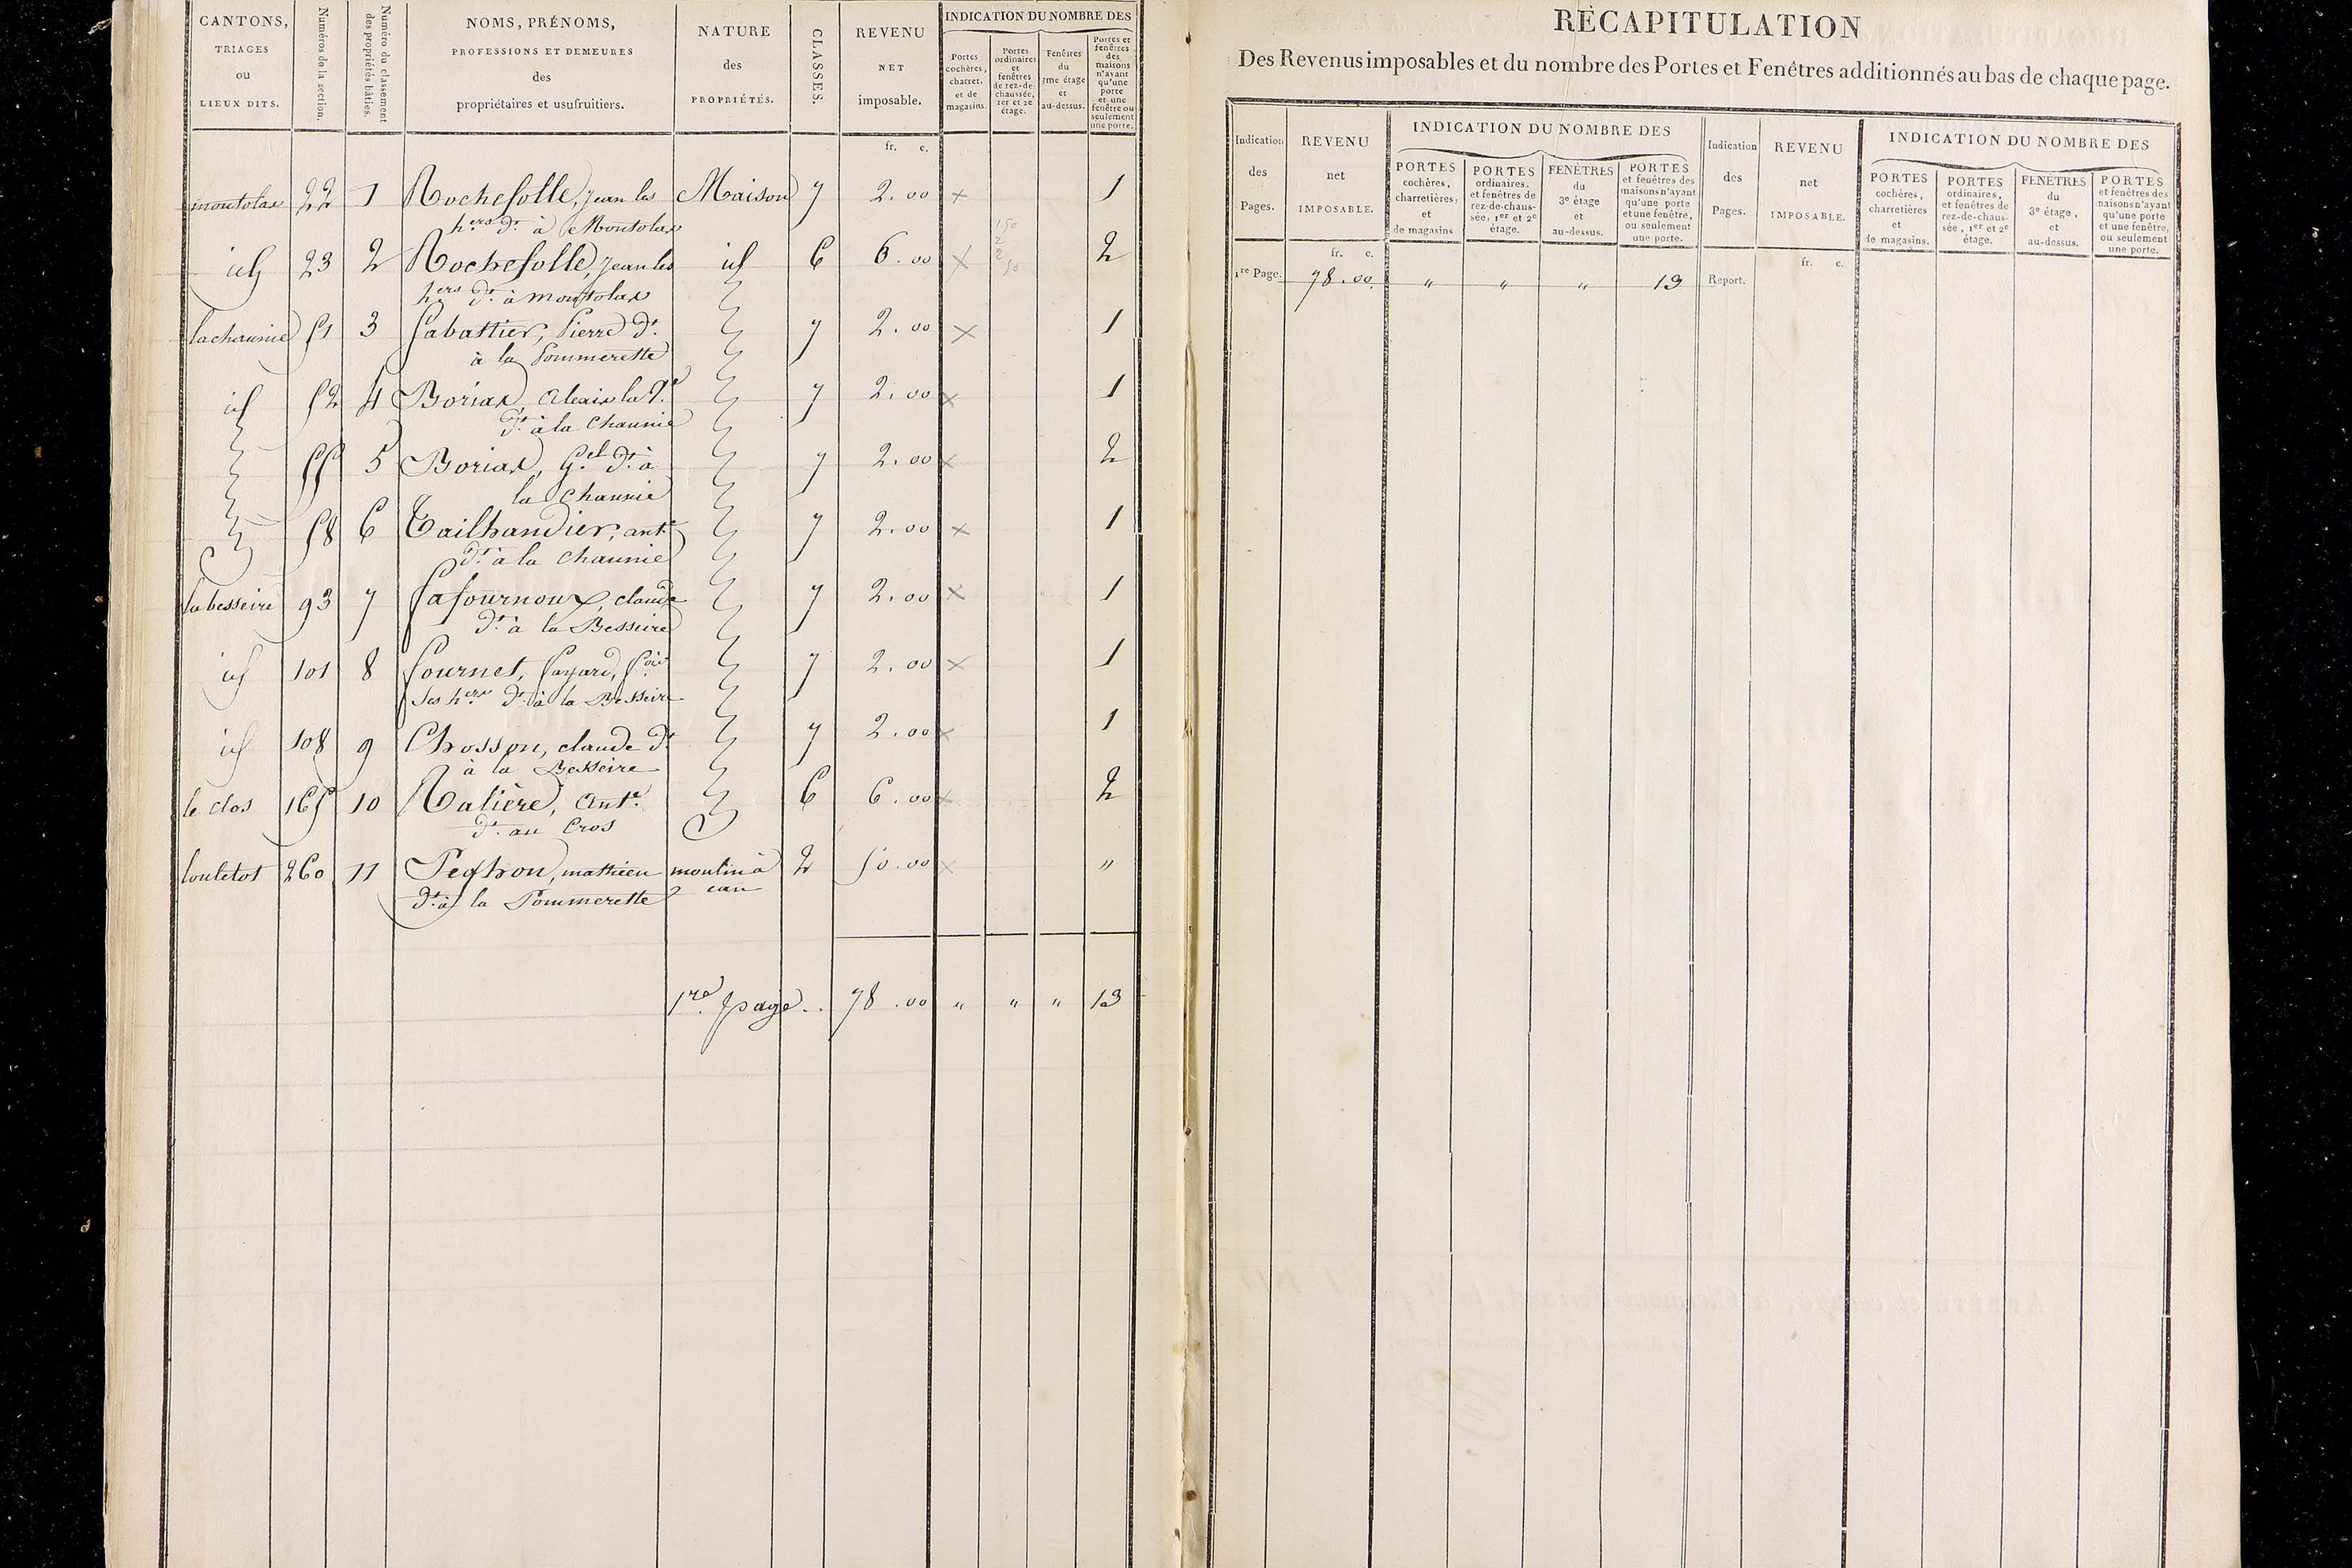 CANTONS,
TRIAGES
ou
LIEUX DITS.
Numéros de la section.
Numéro du classement
des propriétés bâties.
NOMS, PRÉNOMS,
PROFESSIONS ET DEMEURES
des
propriétaires et usufruitiers.
NATURE
des
PROPRIÉTÉS.
CLASSES.
REVENU
NET
imposable.
INDICATION DU NOMBRE DES
Portes
cochères,
charret.
et de
magasins.
Portes
ordinaires
et
fenêtres
de rez-de-
chaussée,
1er et 2e
étage.
Fenêtres
du
3me étage
et
au-dessus.
Portes et
fenêtres
des
maisons
n'ayant
qu'une
porte
et une
fenêtre ou
seulement
une porte.
fr. c.
montolax 22 1 Rochefolle, Jean les Maison 7 2.00 1
hers dt à Montolax
id 23 2 Rochefolle, Jean les id 6 6.00 2
hers dt à montolax
lachaunie 51 3 Sabattier, Pierre dt 7 2.00 1
à la Pommerette
id 52 4 Boriax Alexis la Ve 7 2.00 1
dt à la chaunie
55 5 Boriax, Gel dt à 7 2.00 2
la Chaunie
58 6 Tailhandier, ante 7 2.00 1
dt à la chaunie
la besseire 93 7 Lafournoux, claude 7 2.00 1
dt à la Besseire
id 101 8 fournet, 7 2.00 1
Ses hers dt à la Besseire
id 108 9 Chosson, claude dt 7 2.00 1
à la Besseire
le clos 165 10 Ralière, Ante 6 6.00 2
dt au Cros
260 11 mathieu moulin à 2 50.00 "
dt à la Pommerette eau
1re page .. 78.00 " " " 13
RÉCAPITULATION
Des Revenus imposables et du nombre des Portes et Fenêtres additionnés au bas de chaque page.
Indication
des
Pages.
REVENU
net
IMPOSABLE.
INDICATION DU NOMBRE DES
PORTES
cochères,
charretières,
et
de magasins
PORTES
ordinaires,
et fenêtres de
rez-de-chaus-
sée, 1er et 2e
étage.
FENÊTRES
du
3e étage
et
au-dessus.
PORTES
et fenêtres des
maisons n'ayant
qu'une porte
et une fenêtre,
ou seulement
une porte.
Indication
des
Pages.
REVENU
net
IMPOSABLE.
INDICATION DU NOMBRE DES
PORTES
cochères,
charretières
et
de magasins.
PORTES
ordinaires,
et fenêtres de
rez-de-chaus-
sée, 1er et 2e
étage.
FENÊTRES
du
3e étage,
et
au-dessus.
PORTES
et fenêtres des
maisons n'ayant
qu'une porte
et une fenêtre,
ou seulement
une porte.
fr. c. fr. c.
1re Page. 78.00 " " " 13 Report.